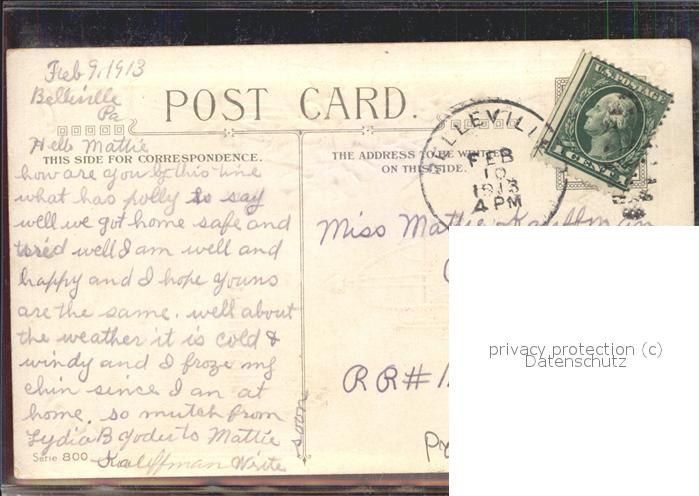 Feb 9, 1913
Belleville
Pa
POST CARD.
Hello Mattie
THIS SIDE FOR CORRESPONDENCE.
how are you by this time
what has polly to say
well we got home safe and
tired well I am well and
happy and I hope youns
are the same. well about
the weather it is cold &
windy and I froze my
chin since I am at
home. so mutch from
Lydia B Yoder to Mattie
Kauffman Write
soon
Serie 800
THE ADDRESS TO BE WRITTEN
ON THIS SIDE.
BELLEVILLE
FEB
10
1913
4 PM
U.S. POSTAGE
1 CENT 1
Miss Mattie Kauffman
R R # 1
privacy protection (c)
Datenschutz